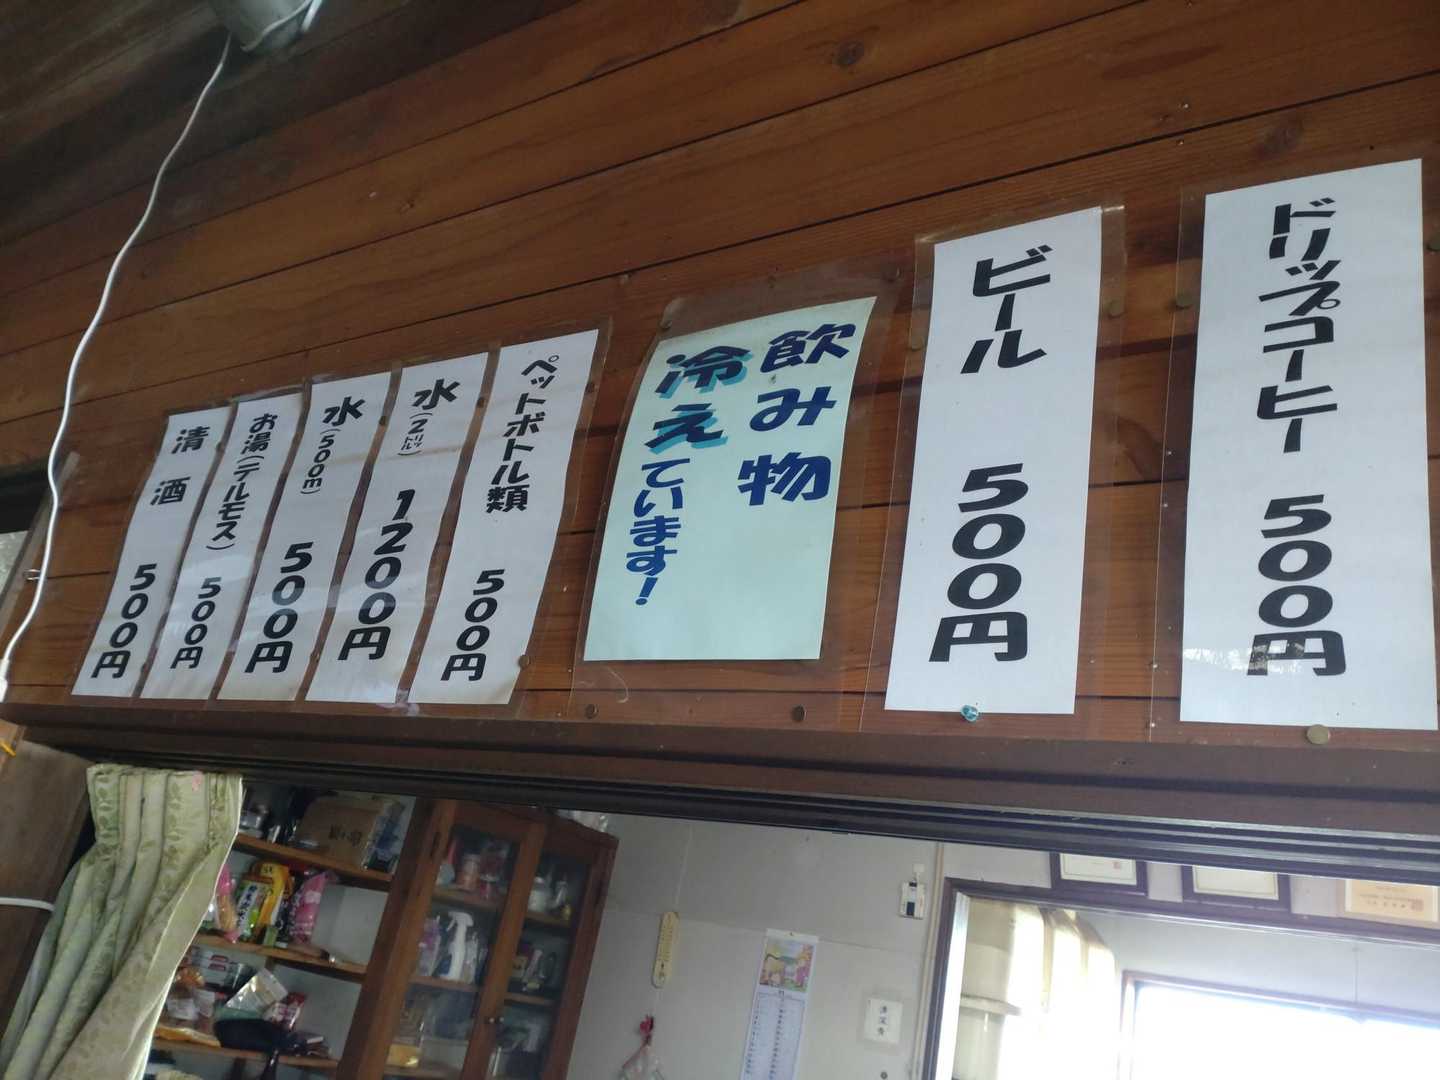 ドリップコーヒー 500円
ビール 500円
飲み物
冷えています!
ペットボトル類 500円
水(2リットル) 1200円
水(500m) 500円
お湯(テルモス) 500円
清酒 500円